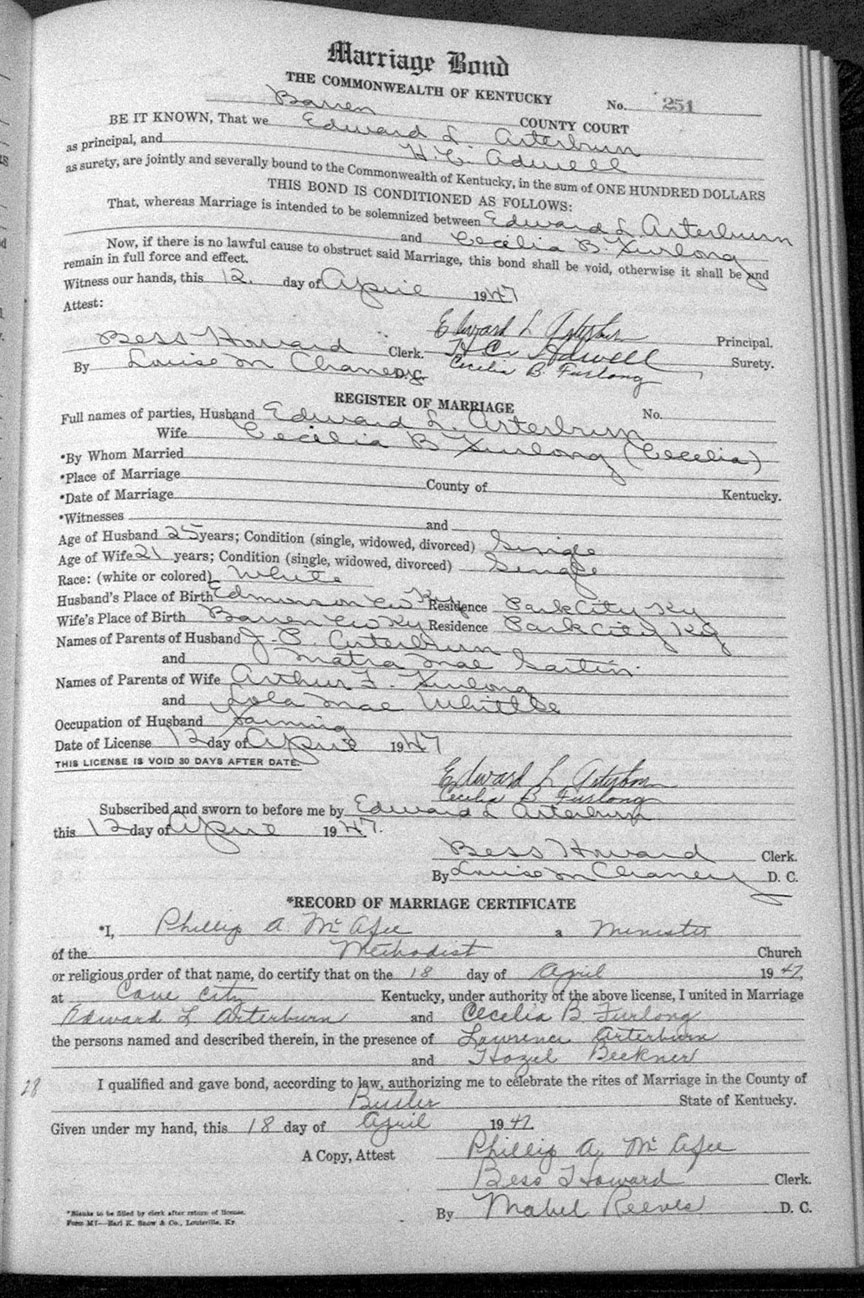 Marriage Bond
THE COMMONWEALTH OF KENTUCKY
No. 251
Barren COUNTY COURT
BE IT KNOWN, That we Edward L. Arterburn
as principal, and H. C. Adwell
as surety, are jointly and severally bound to the Commonwealth of Kentucky, in the sum of ONE HUNDRED DOLLARS
THIS BOND IS CONDITIONED AS FOLLOWS:
That, whereas Marriage is intended to be solemnized between Edward L Arterburn
and Cecelia B. Furlong
Now, if there is no lawful cause to obstruct said Marriage, this bond shall be void, otherwise it shall be and
remain in full force and effect.
Witness our hands, this 12. day of April 1947
Attest:
Edward L Arterburn Principal.
Bess Howard Clerk. H C. Adwell Surety.
By Louise M Chaney DC Cecelia B. Furlong
REGISTER OF MARRIAGE
Full names of parties, Husband Edward L. Arterburn No.
Wife Cecilia B Furlong (Cecelia)
*By Whom Married
*Place of Marriage County of Kentucky.
*Date of Marriage
*Witnesses and
Age of Husband 25 years; Condition (single, widowed, divorced) Single
Age of Wife 21 years; Condition (single, widowed, divorced) Single
Race: (white or colored) White
Husband's Place of Birth Edmonson Co Ky Residence Park City Ky
Wife's Place of Birth Barren Co Ky Residence Park City Ky
Names of Parents of Husband Arterburn
and Mae
Names of Parents of Wife Arthur F. Furlong
and Lola Mae Whittle
Occupation of Husband Farming
Date of License 12 day of April 1947
THIS LICENSE IS VOID 30 DAYS AFTER DATE.
Edward L Arterburn
Cecelia B Furlong
Subscribed and sworn to before me by Edward L Arterburn
this 12 day of April 1947.
Bess Howard Clerk.
By Louise M Chaney D. C.
*RECORD OF MARRIAGE CERTIFICATE
*I, Phillip A. McAfee a Minister
of the Methodist Church
or religious order of that name, do certify that on the 18 day of April 1947,
at Cave City Kentucky, under authority of the above license, I united in Marriage
Edward L Arterburn and Cecelia B Furlong
the persons named and described therein, in the presence of Lawrence Arterburn
and Hazel Beckner
28 I qualified and gave bond, according to law, authorizing me to celebrate the rites of Marriage in the County of
Butler State of Kentucky.
Given under my hand, this 18 day of April 1947
A Copy, Attest Phillip A. McAfee
Bess Howard Clerk.
By Mabel Reeves D. C.
*Blanks to be filled by clerk after return of license.
Form M7—Earl K. Snow & Co., Louisville, Ky.